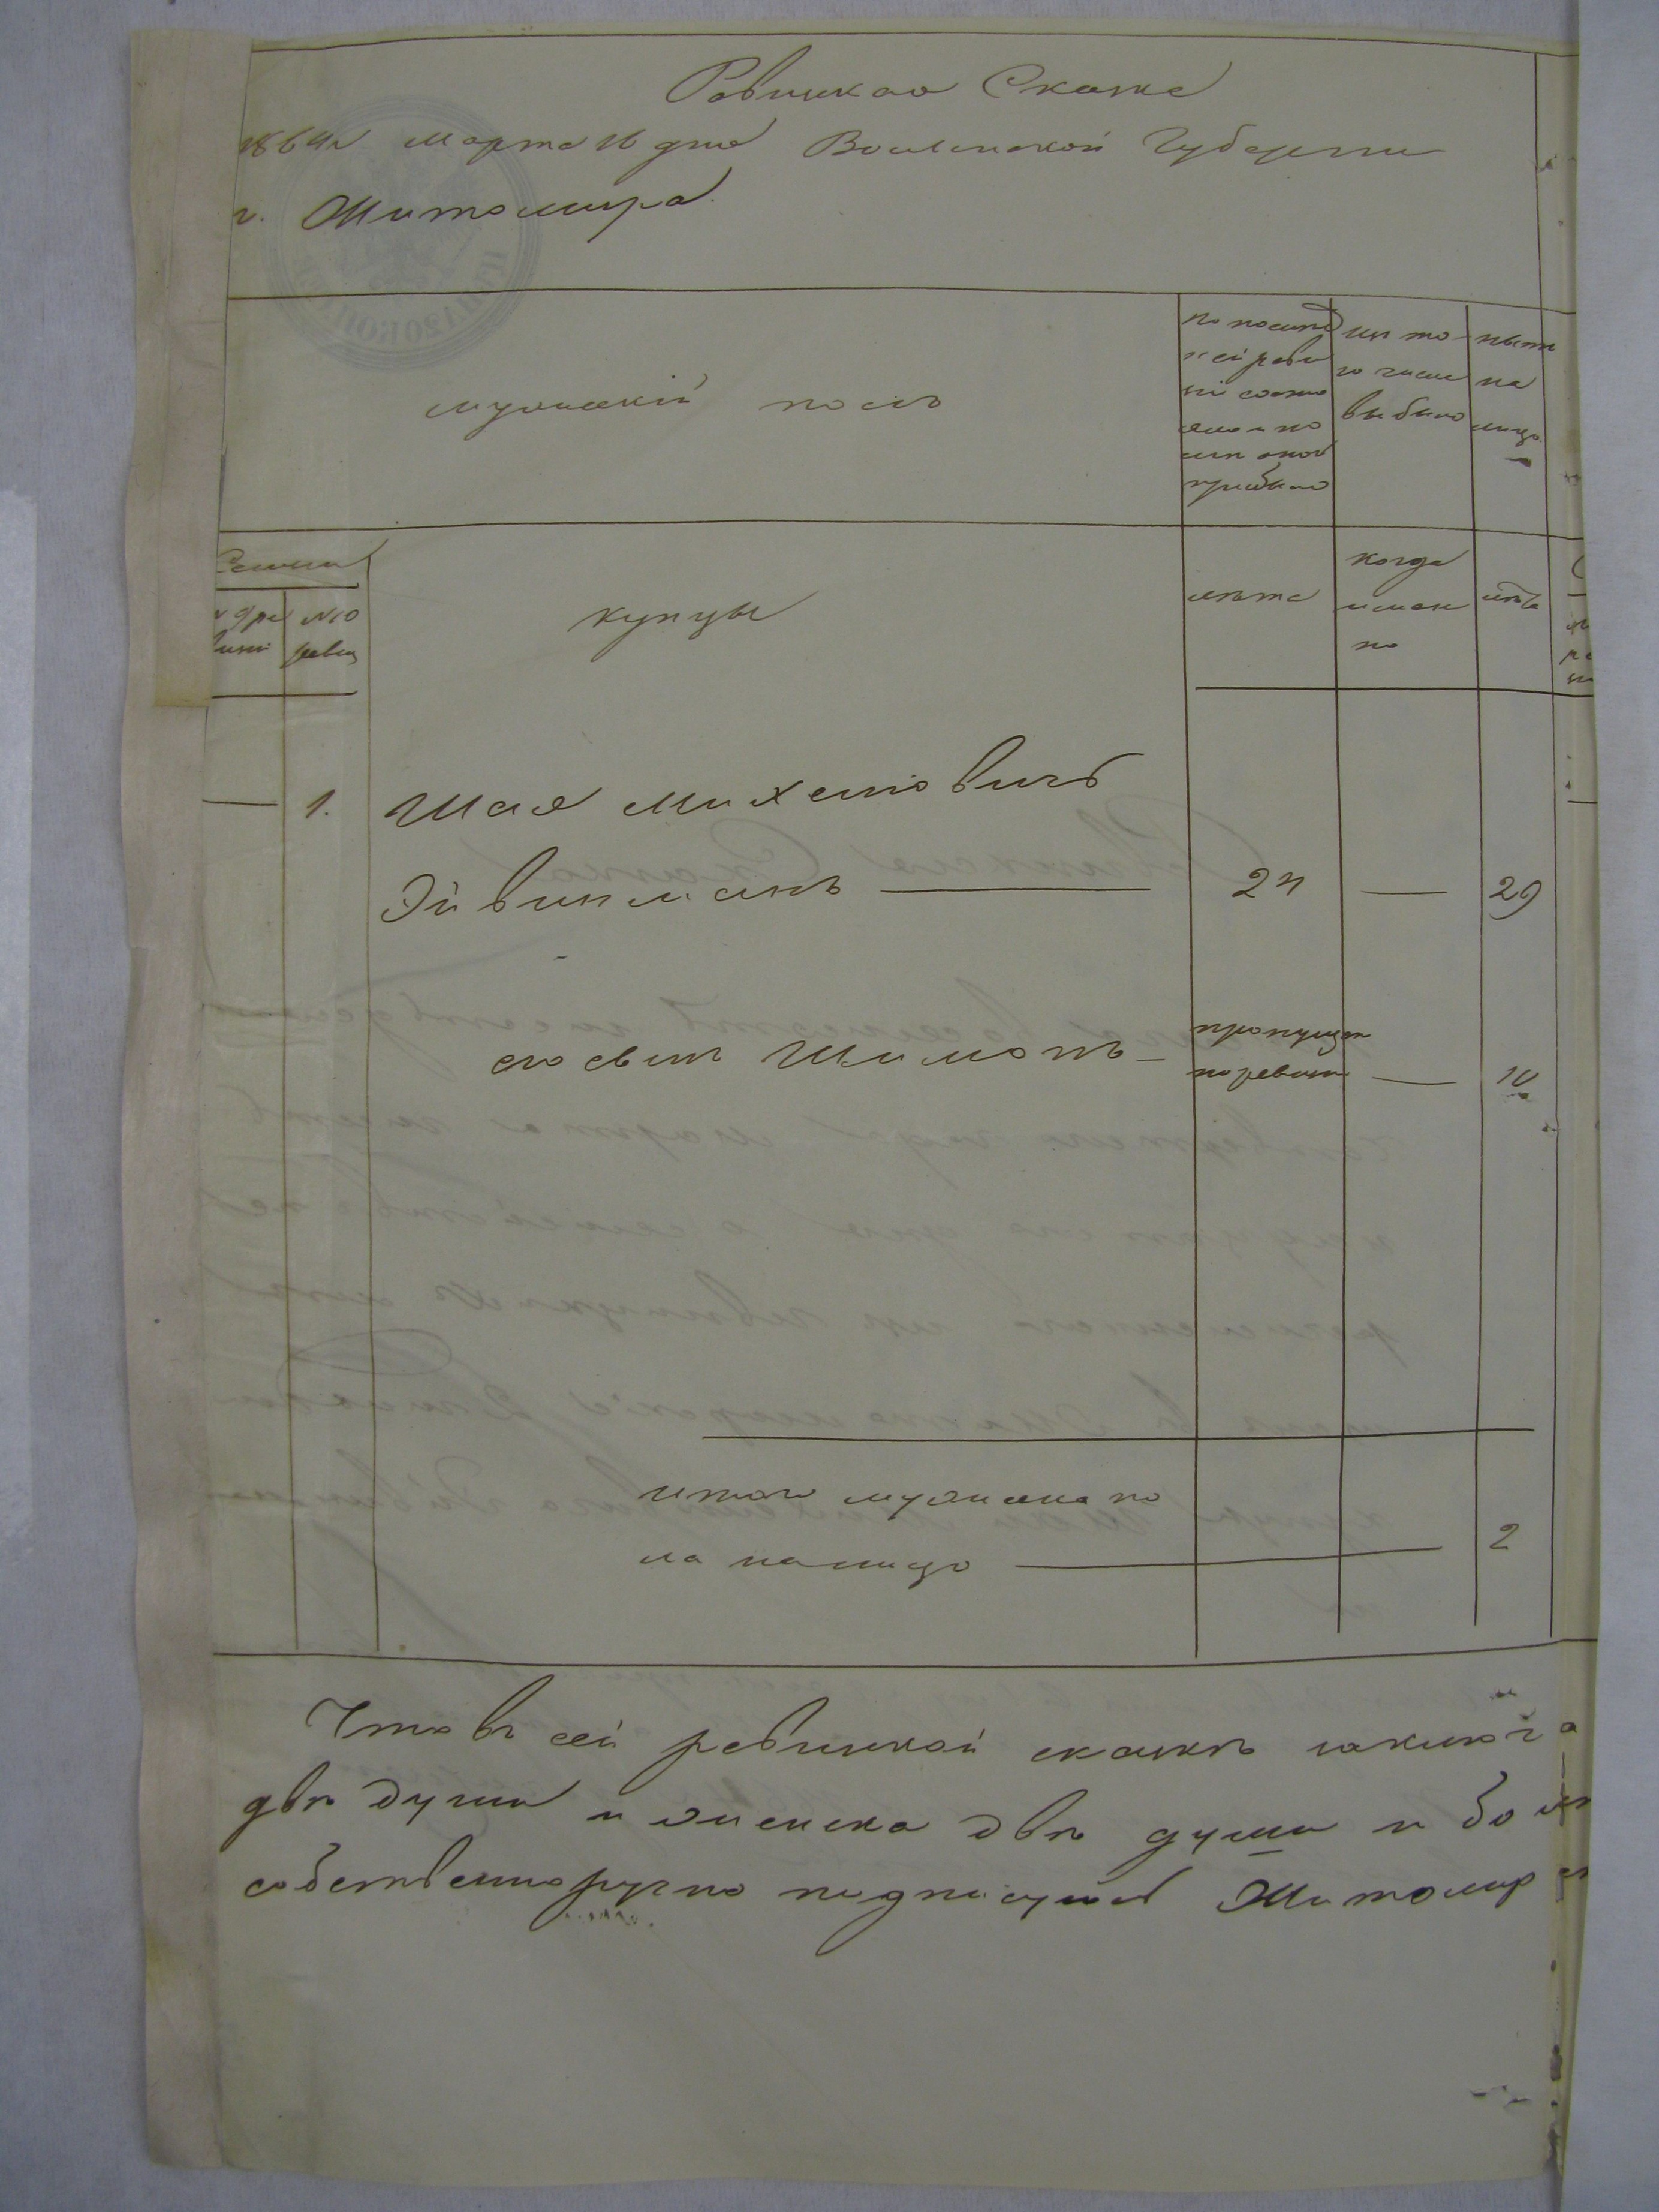 Ревизкая Сказка
1864 г. Марта 16 дня Волынской Губернии
г. Житомира.
мужеский полъ
по послед
ней реви
зіи состо
яло и по
слѣ оной
прибыло
изъ то
го числа
выбыло
ныне
на
лицо.
Семьи
№10
ревиз
купцы
лѣта
когда
имен
но
лѣта
1. Шая Михелiовичъ
Эйвинманъ 24 29
его сынъ Шимонъ пропущен
по ревизіи 10
итого мужеска по
ла налицо 2
Что въ сей ревизкой сказкѣ заключа
двѣ души и женска двѣ души и бо
собственноручно подписуюсь Житомир